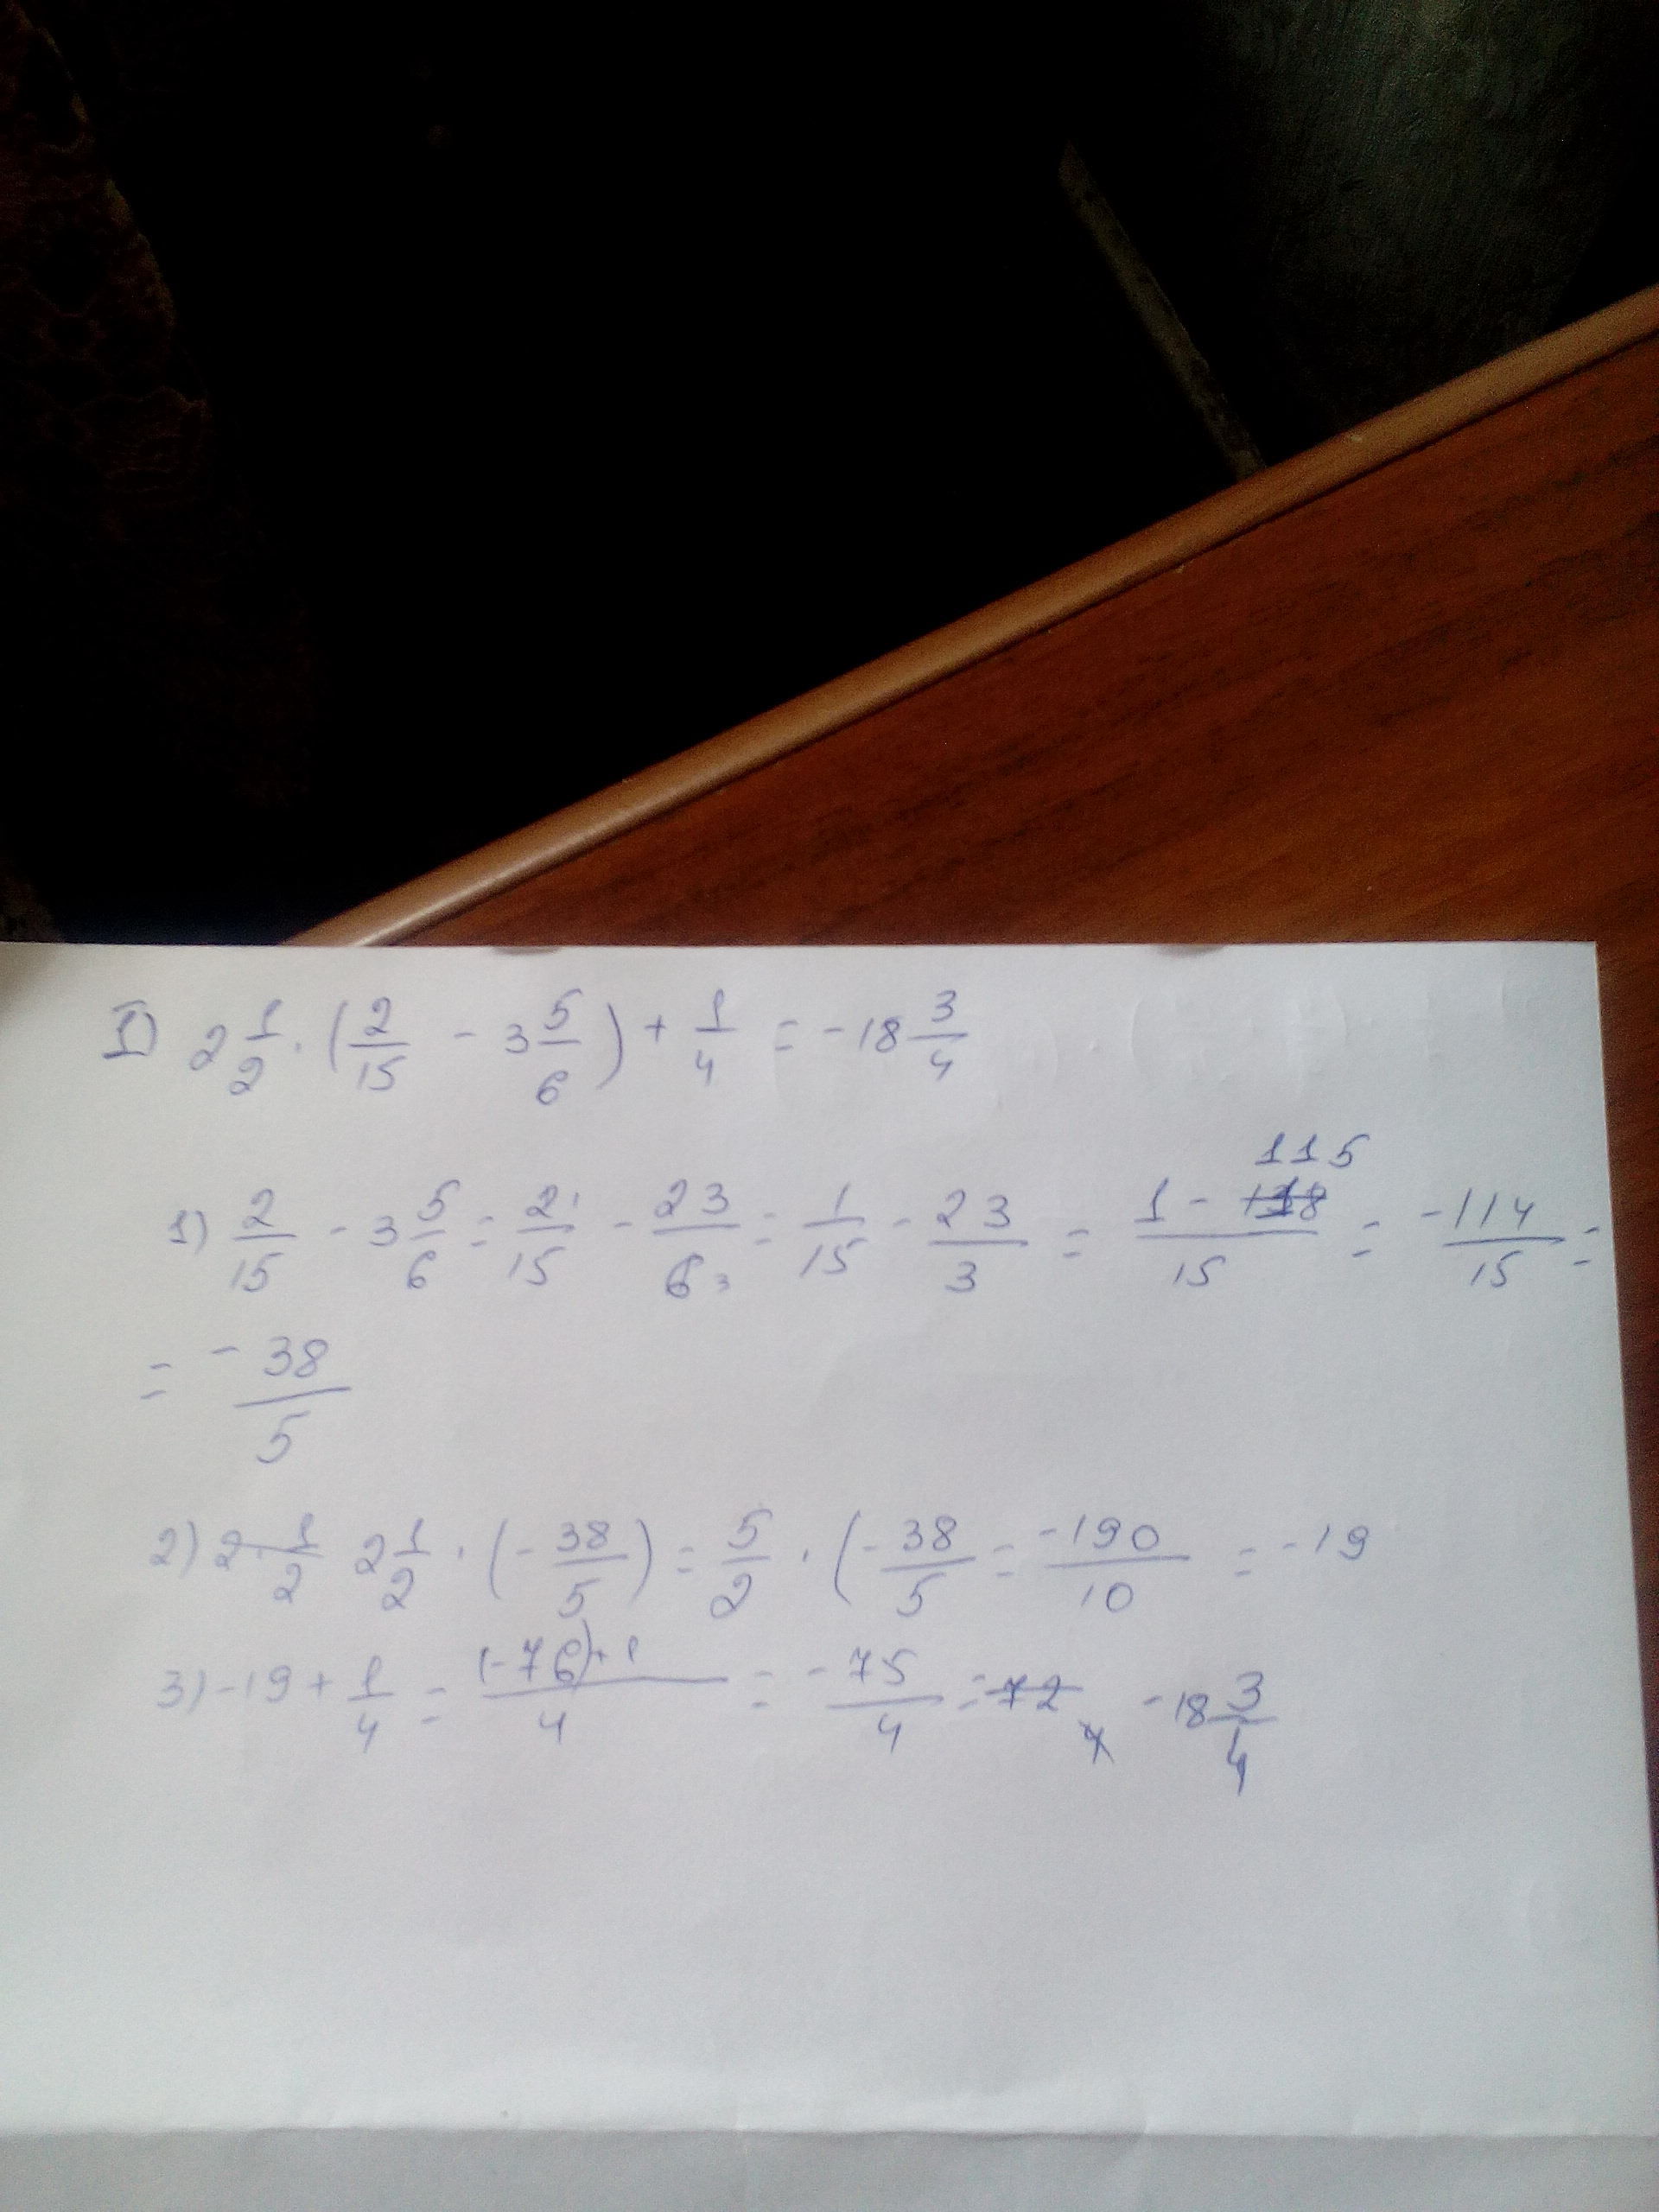 I) 2 1/2 · (2/15 - 3 5/6) + 1/4 = -18 3/4
1) 2/15 - 3 5/6 = 2/15 - 23/6 = 1/15 - 23/3 = (1 - 115)/15 = -114/15 =
= -38/5
2) 2 · 1/2 2 1/2 · (-38/5) = 5/2 · (-38/5 = -190/10 = -19
3) -19 + 1/4 = ((-76)+1)/4 = -75/4 = 72 -18 3/4